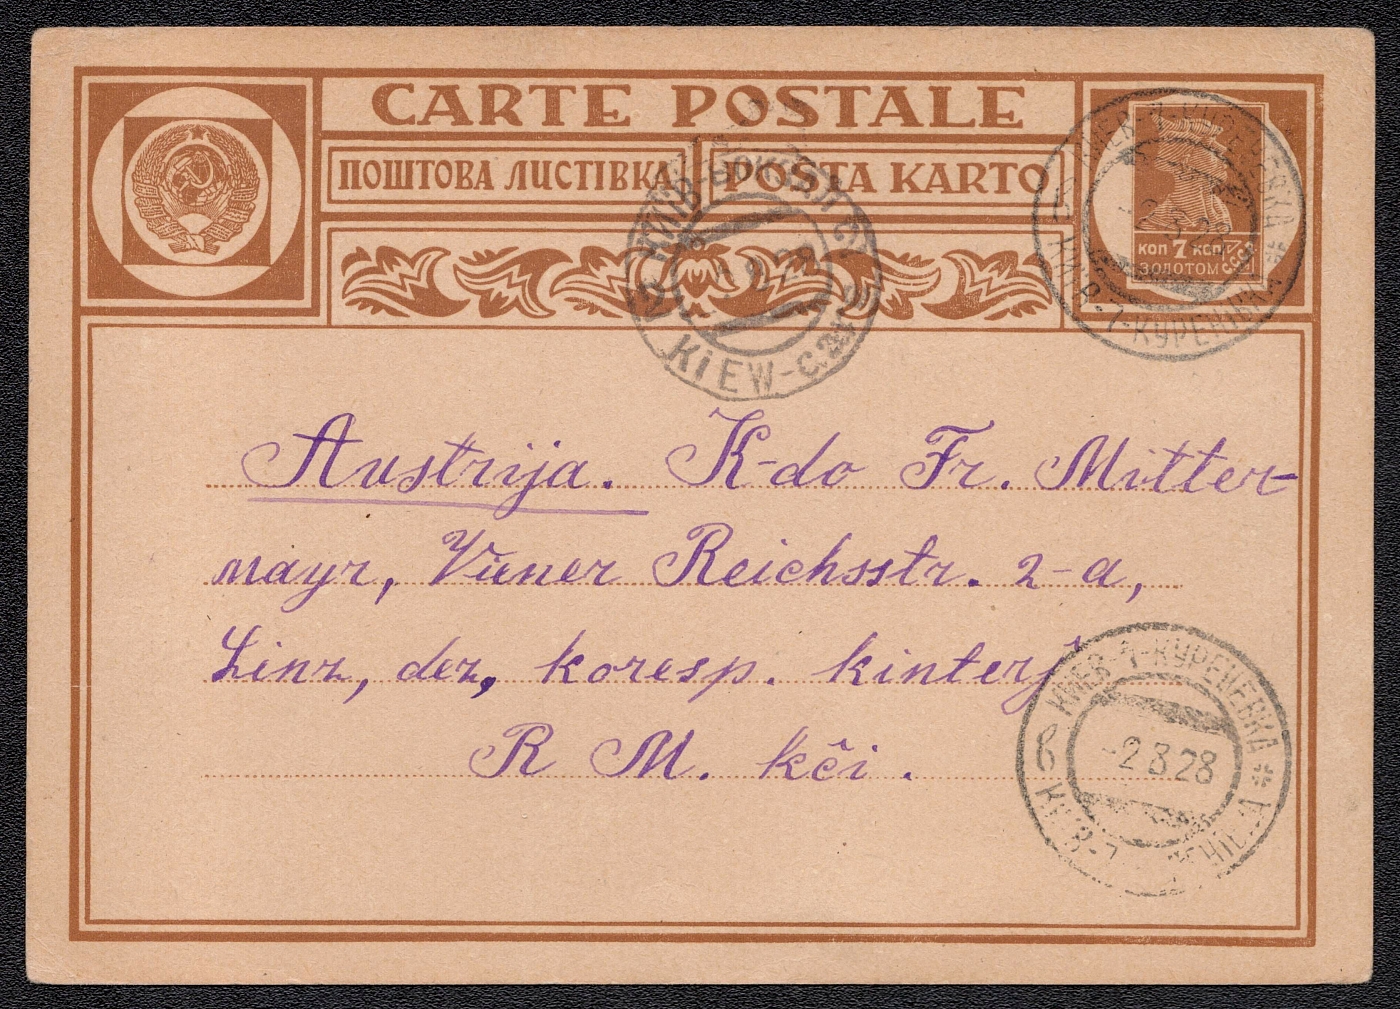 CARTE POSTALE
ПОШТОВА ЛИСТІВКА
POSTA KARTO
КОП 7 КОП
ЗОЛОТОМ
СССР
КИЕВ-1-КУРЕНЕВКА
-2 3 28
КИЇВ-1-КУРЕНІВКА
KIEW
Austrija. K-do Fr. Mitter-
mayr, Viener Reichsstr. 2-a,
Linz, dez, koresp. kinterj
R M. kĉi.
КИЕВ-1-КУРЕНЕВКА
в
-2 3 28